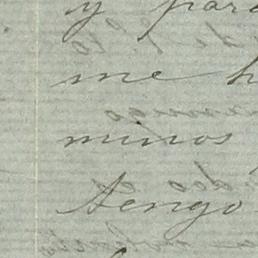 y para
me h
minos
tengo